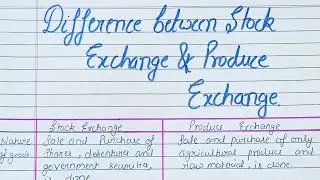 Difference between Stock
Exchange & Produce
Exchange.
Stock Exchange
Produce Exchange
Nature of goods
Sale and Purchase of
Shares, debentures and
government securities,
is done
Sale and purchase of only
agricultural product and
raw material, is done.